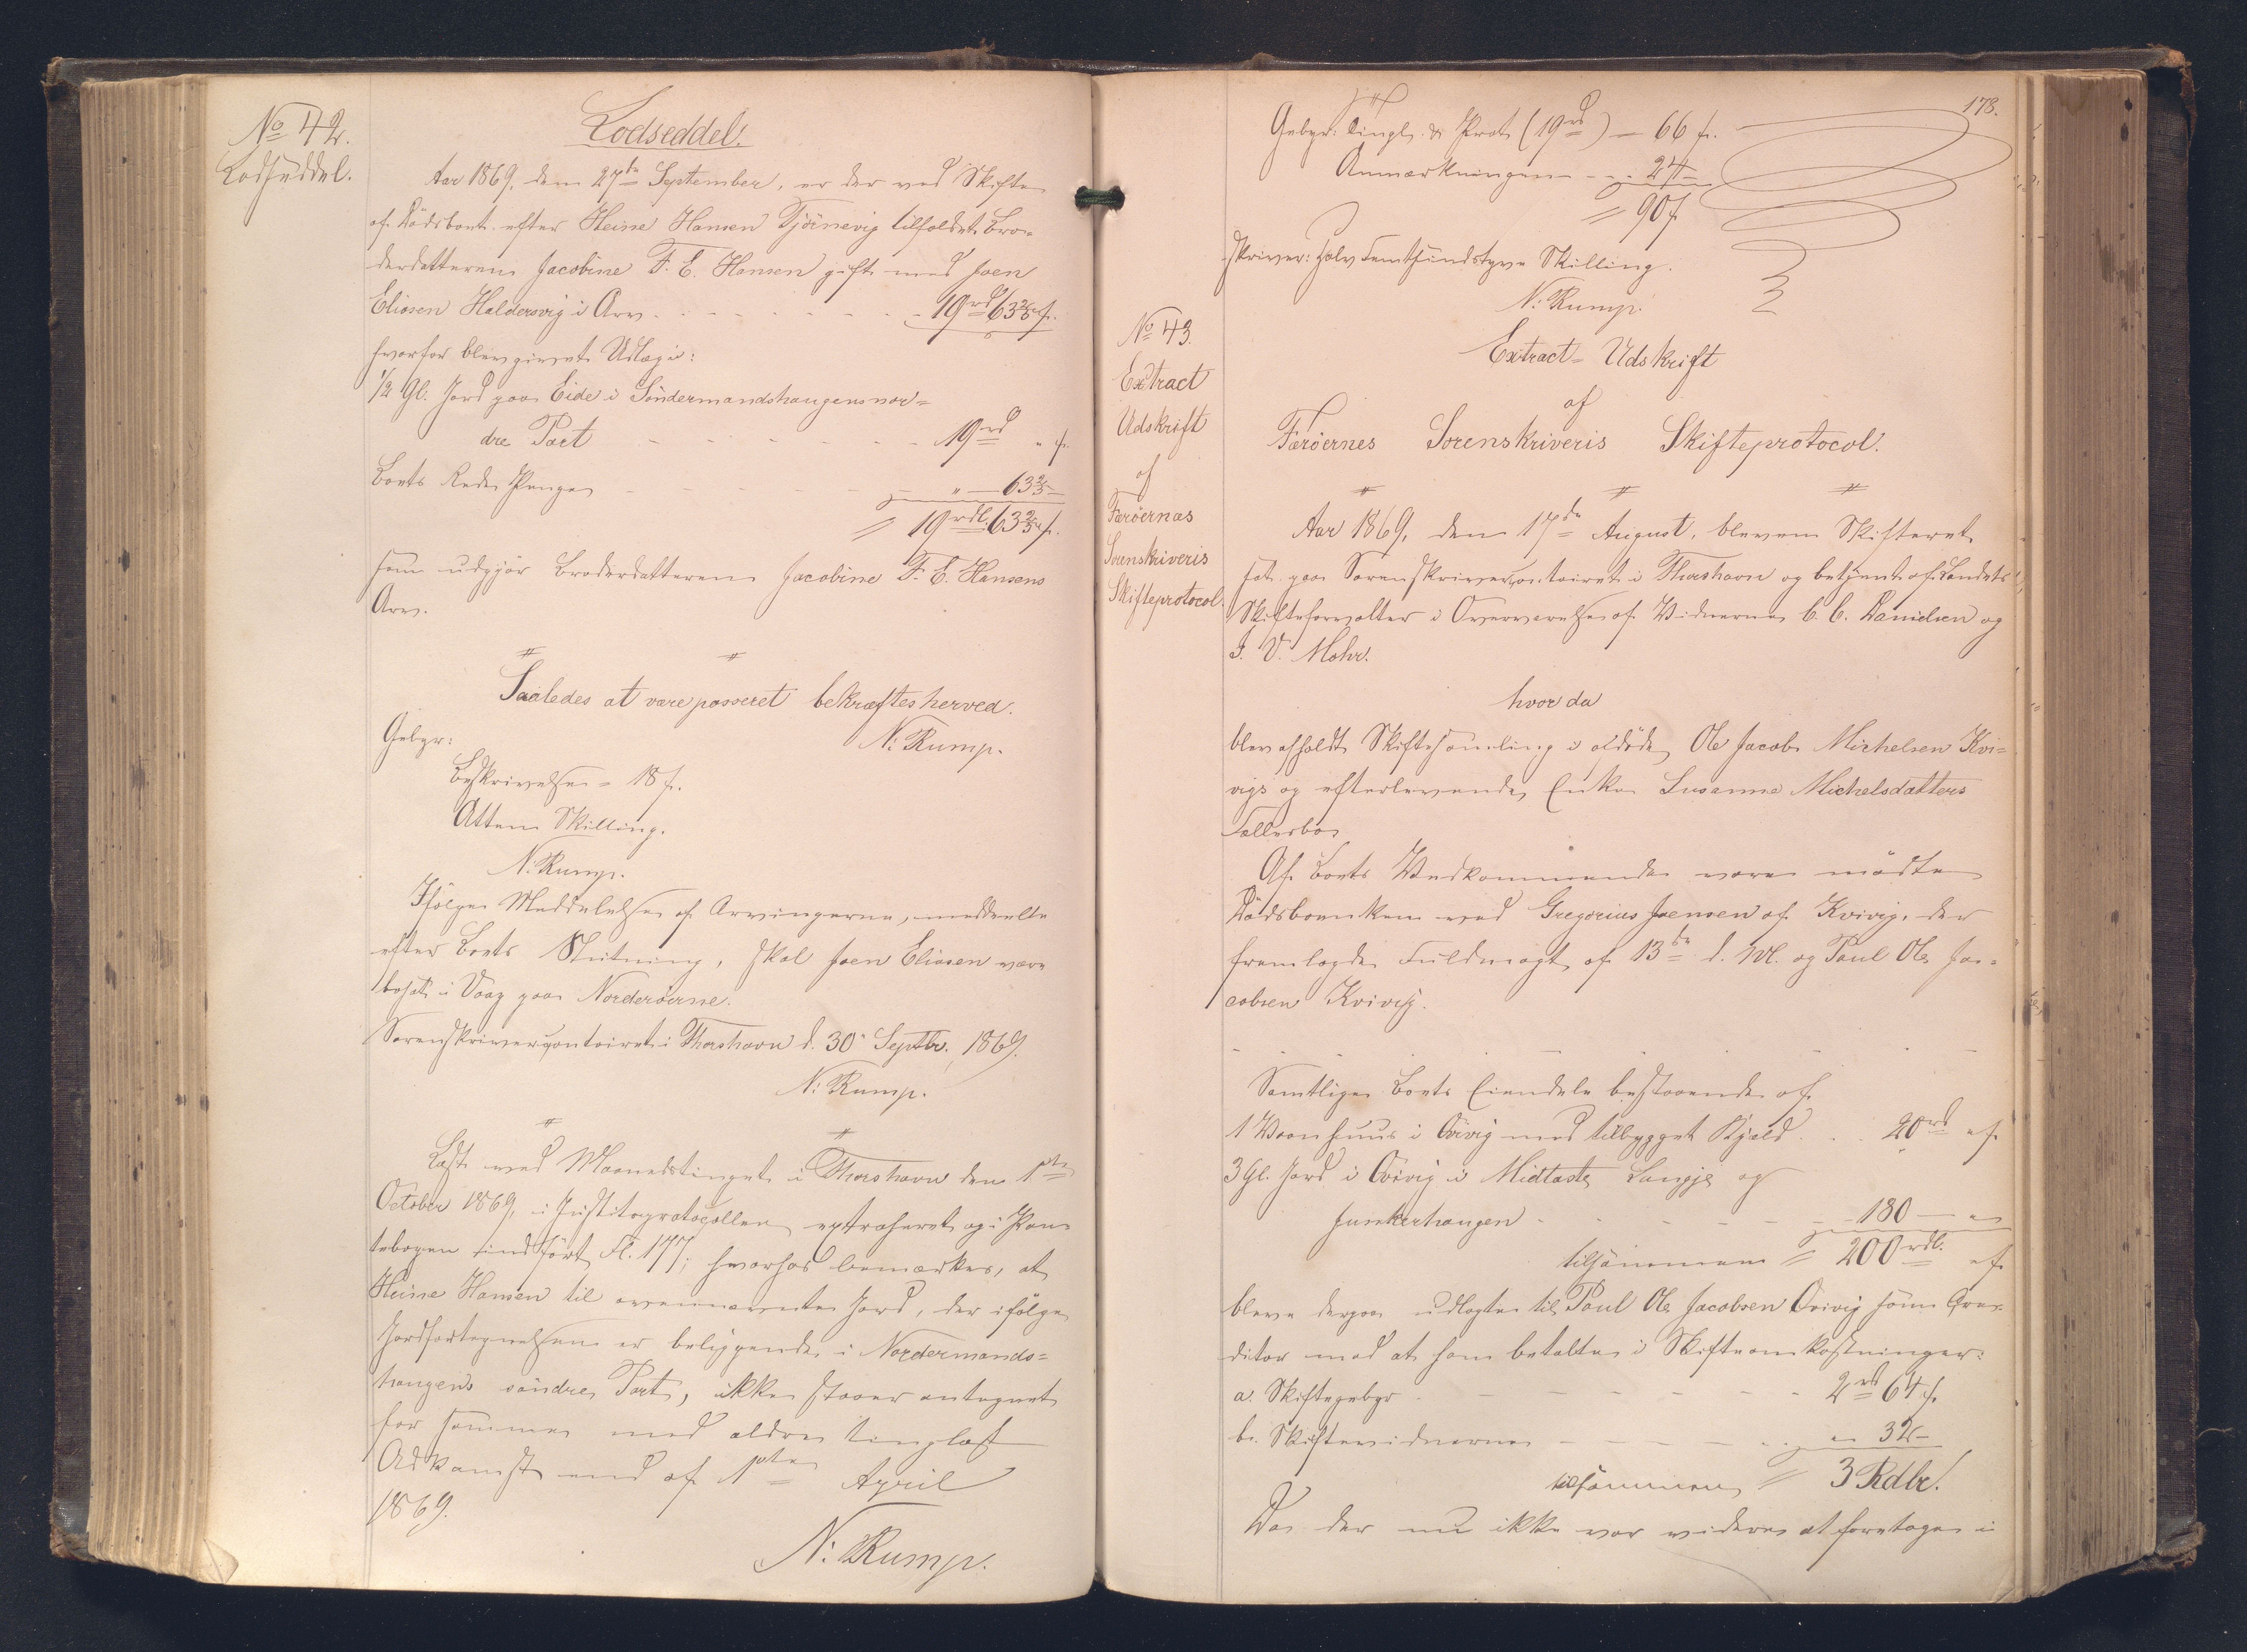 No 42.
Lodseddel.
Lodseddel.
Aar 1869, den 27de September, er der ved Skifte
af Dödsboet efter Heine Hansen Tjörnevig tilfaldet Bro-
derdatteren Jacobine F. E. Hansen gift med Joen
Eliasen Haldersvig i Arv - - - 19rd 63 2/3 s.
hvorfor blev givet Udlæg i:
1/2 Gl. Jord paa Eide i Söndermandshaugens nor=
dre Part - - - 19rd " s.
Boets Rede Penge - - - " — 63 2/3 —
= 19rdl. 63 2/3 s.
som udgjör Broderdatteren Jacobine F. E. Hansens
Arv.
Saaledes at være passeret bekræftes herved.
N. Rump.
Gebyr:
Beskrivelse = 18 s.
Atten Skilling.
N. Rump.
Ifölge Meddelelse af Arvingerne, meddeelte
efter Boets Slutning, skal Joen Eliasen være
bosat i Vaag paa Norderöerne.
Sorenskrivercontoiret i Thorshavn d. 30 Septbr. 1869.
N. Rump.
Læst ved Maanedstinget i Thorshavn den 1ste
October 1869, i Justitsprotocollen extraheret og i Pan-
tebogen indfört Fl. 177; hvorhos bemærkes, at
Heine Hansen til ovennævnte Jord, der ifölge
Jordfortegnelsen er beliggende i Nordermands=
haugens söndre Part, ikke staaer antegnet
for samme med ældre tinglæst
Adkomst end af 1ste April
1869.
N. Rump.
178.
Gebyr: Tingl. & Prot. (19rd) — 66 s.
Anmærkningen - - 24 —
= 90 s.
skriver: halvfemtsindstyve Skilling.
N. Rump.
No 43.
Extract
Udskrift
af
Færöernes
Sorenskriveris
Skifteprotocol.
Extract=Udskrift
af
Færöernes Sorenskriveris Skifteprotocol.
Aar 1869, den 17de August, blev en Skifteret
sat paa Sorenskrivercontoiret i Thorshavn og betjent af Landets
Skifteforvalter i Overværelse af Vidnerne C. C. Danielsen og
J. V. Mohr.
hvor da
blev afholdt Skiftesamling i afdöde Ole Jacob Michelsen Kvi=
vigs og efterlevende Enke Susanne Michelsdatters
Fællesbo.
Af Boets Vedkommende vare mödte
Dödsboenken ved Gregorius Joensen af Kvivig, der
fremlagde Fuldmagt af 13de d. M. og Poul Ole Ja-
cobsen Kvivig.
Samtlige Boets Eiendele bestaaende af
1 Vaanhuus i Qvivig med tilbygget Kjæld . . 20rd " s.
3 Gl. Jord i Qvivig i Midtaste, Laugje og
Junkerhaugen - - - 180 — "
tilsammen = 200rdl. " s.
bleve derpaa udlagte til Poul Ole Jacobsen Qvivig som Cre-
ditor mod at han betalte i Skifteomkostninger:
a. Skiftegebyr - - - 2rd 64 s.
b. Skiftevidnerne - - - " 32 —
tilsammen = 3 Rdlr.
Da der nu ikke var videre at foretage i